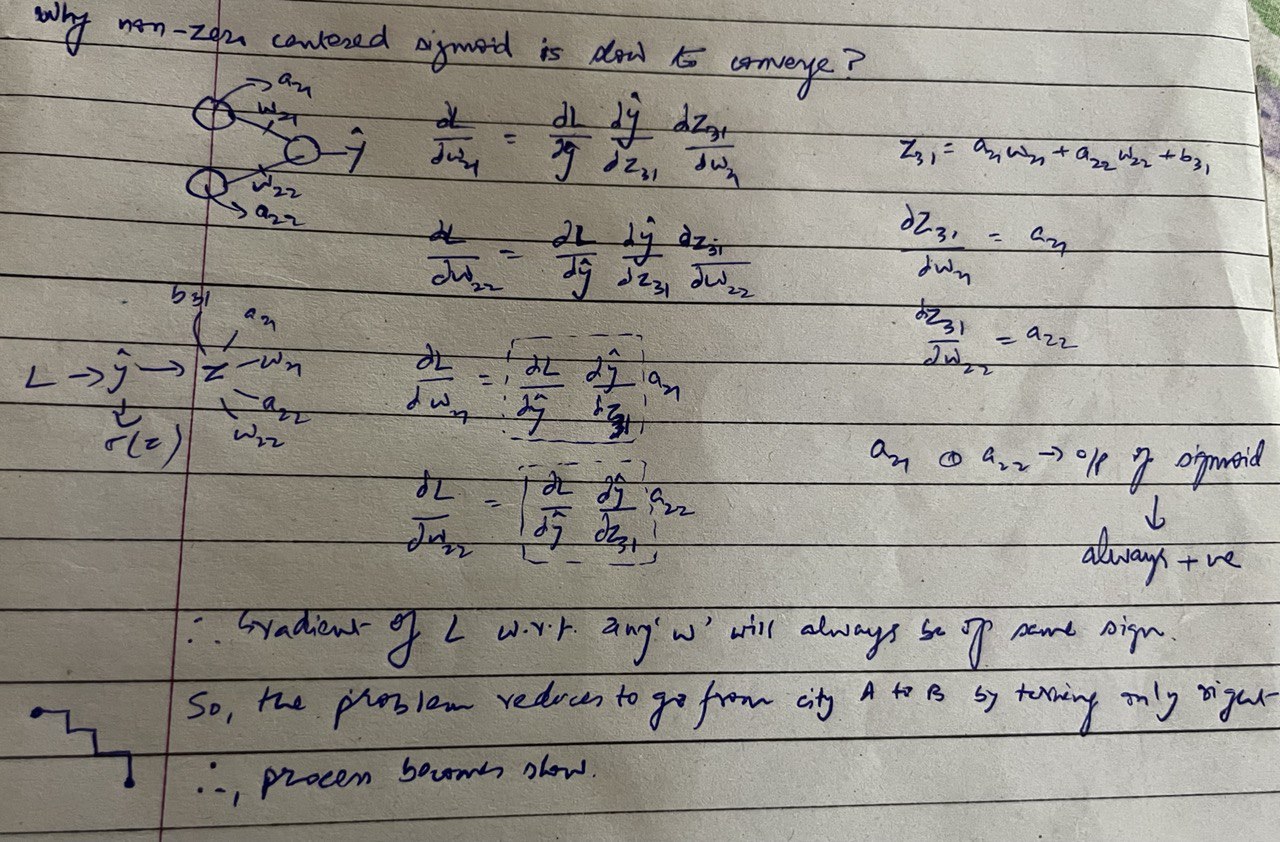 Why non-zero centered sigmoid is slow to converge?
a₂₁
w₂₁
ŷ
w₂₂
a₂₂
∂L/∂w₂₁ = ∂L/∂ŷ ∂ŷ/∂z₃₁ ∂z₃₁/∂w₂₁
z₃₁ = a₂₁w₂₁ + a₂₂w₂₂ + b₃₁
∂L/∂w₂₂ = ∂L/∂ŷ ∂ŷ/∂z₃₁ ∂z₃₁/∂w₂₂
∂z₃₁/∂w₂₁ = a₂₁
∂z₃₁/∂w₂₂ = a₂₂
b₃₁
a₂₁
L → ŷ → z - w₂₁
a₂₂
w₂₂
σ(z)
∂L/∂w₂₁ = ∂L/∂ŷ ∂ŷ/∂z₃₁ a₂₁
∂L/∂w₂₂ = ∂L/∂ŷ ∂ŷ/∂z₃₁ a₂₂
a₂₁ a₂₂ → o/p of sigmoid
↓
always +ve
∴ Gradient of L w.r.t. any 'w' will always be of same sign.
So, the problem reduces to go from city A to B by turning only right
∴, process becomes slow.